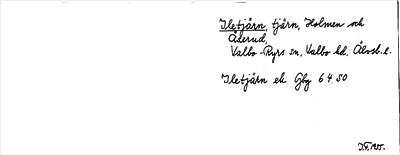 Iletjärn, tjärn, Holmen och
Åserud,
Valbo-Ryrs sn, Valbo hd, Älvsb. l.
Iletjärn ek Gbg 64 50